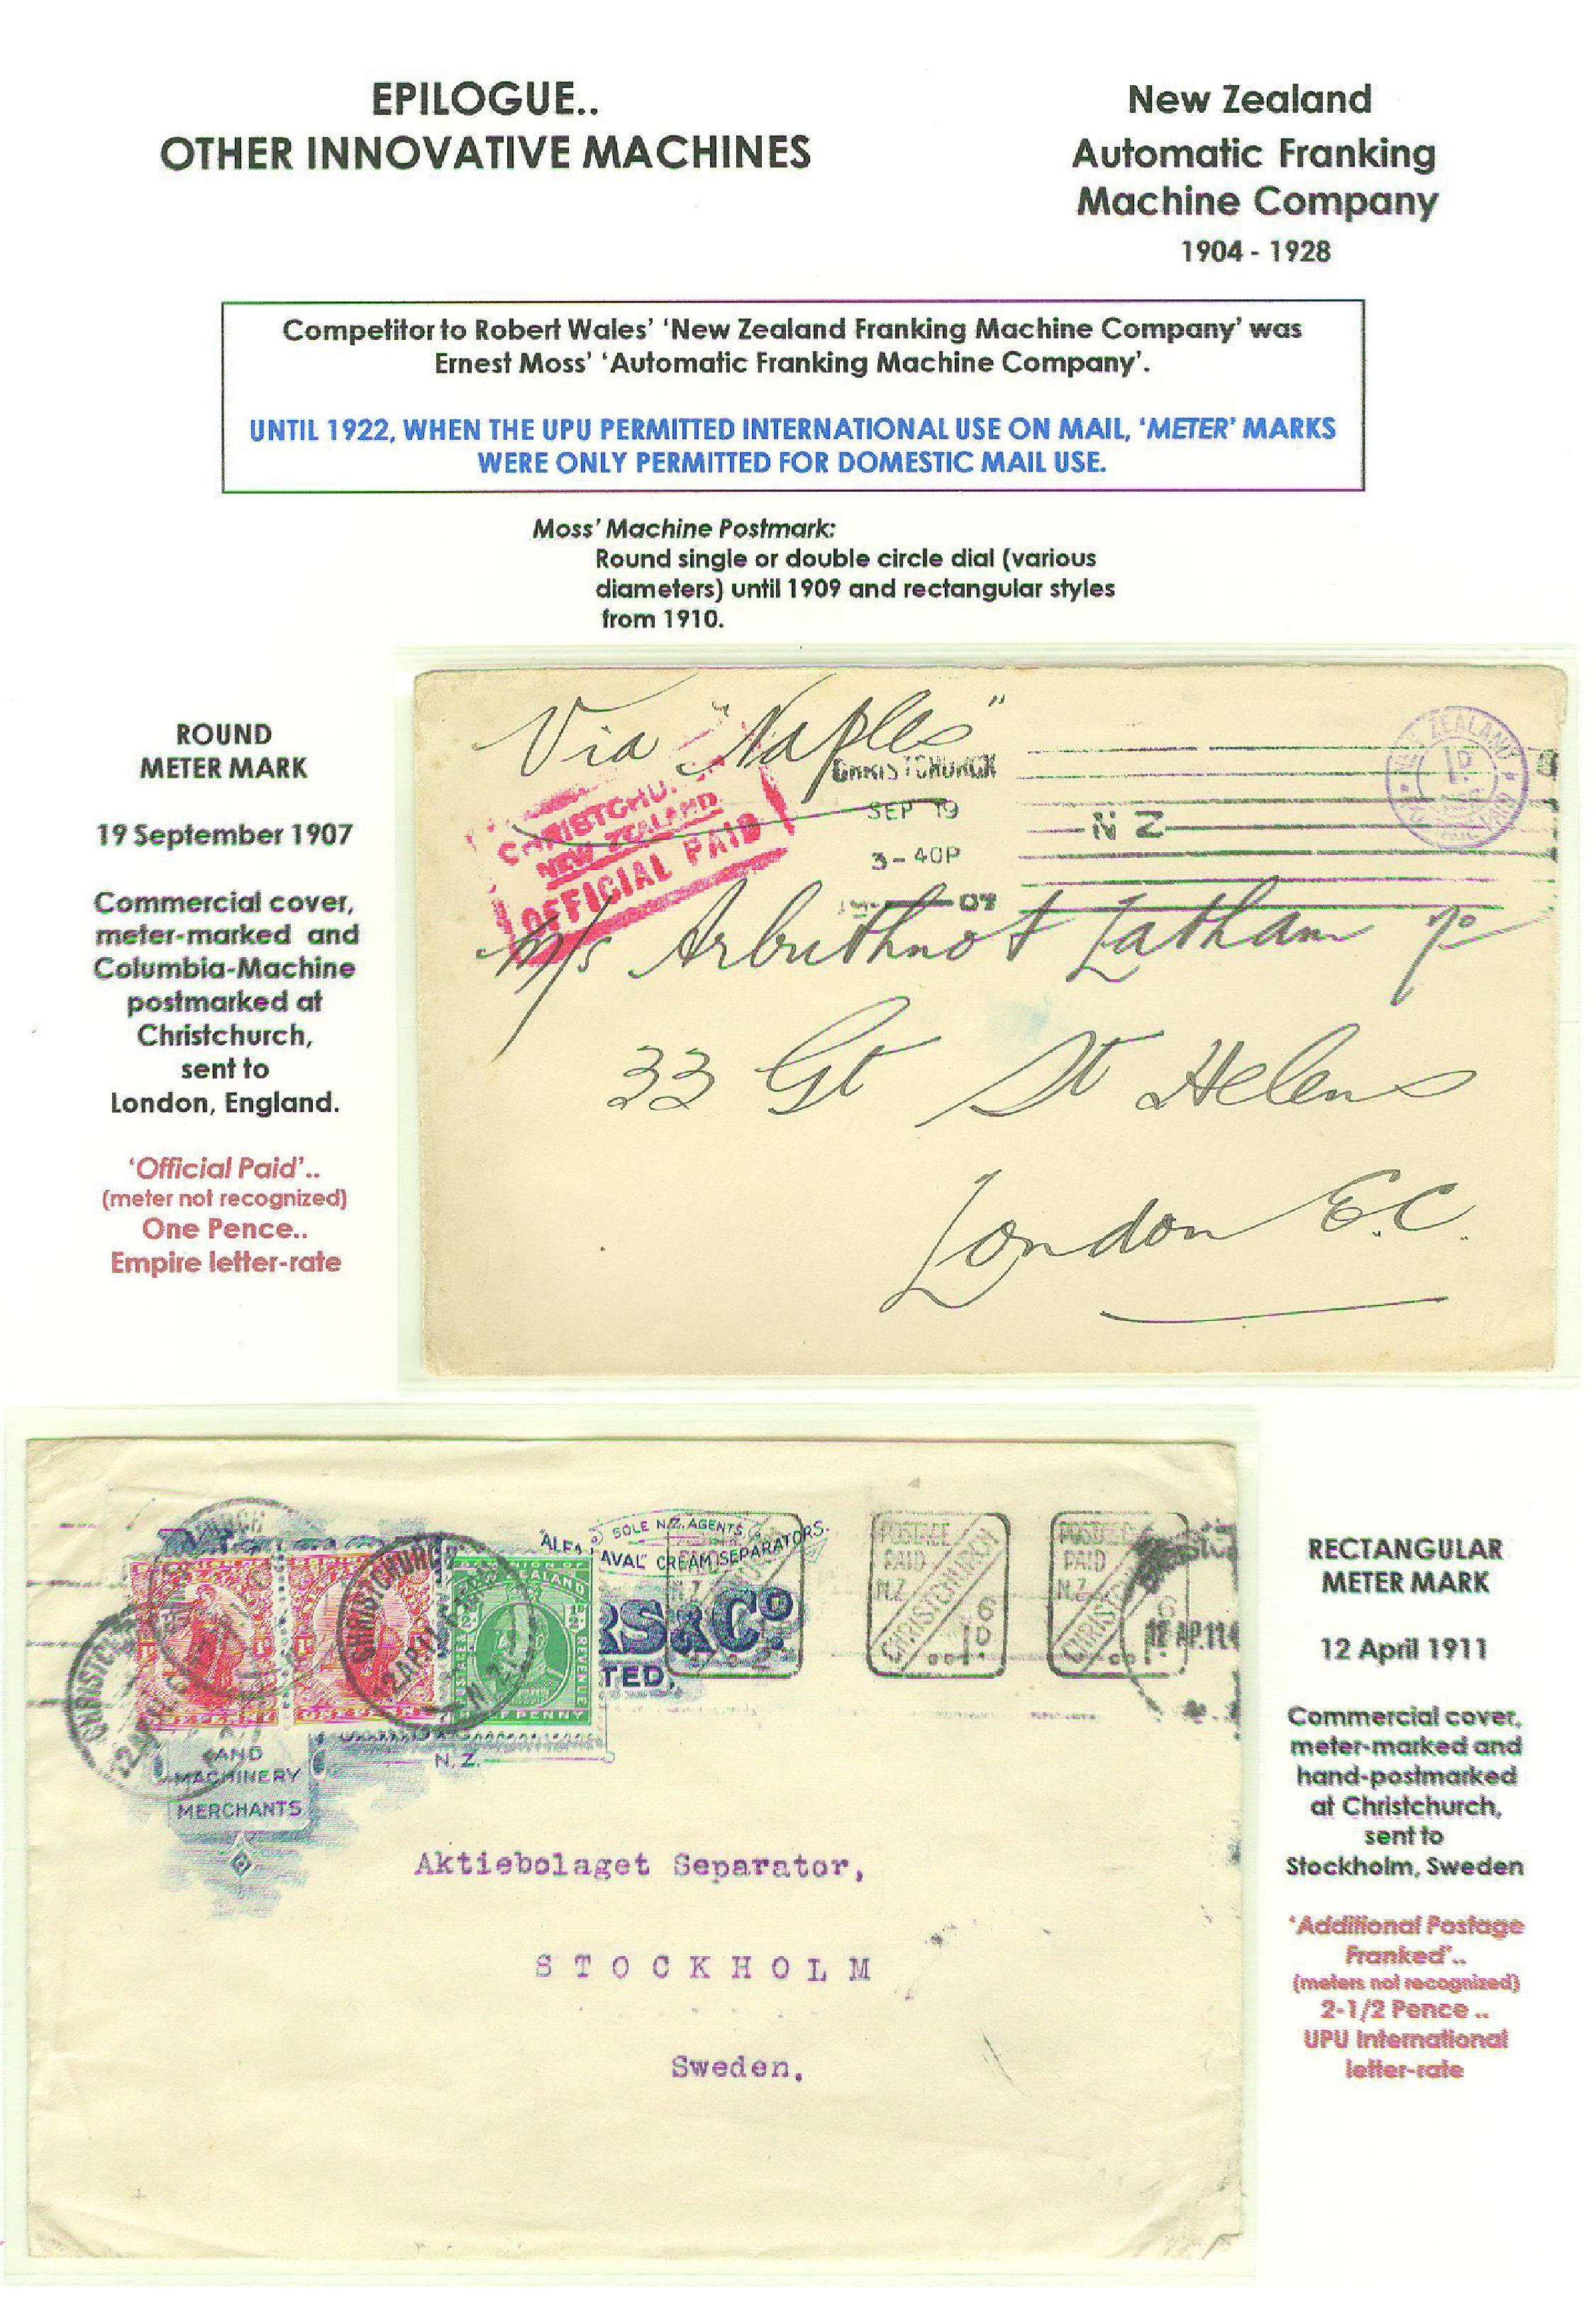 EPILOGUE..
OTHER INNOVATIVE MACHINES
New Zealand
Automatic Franking
Machine Company
1904 - 1928
Competitor to Robert Wales' 'New Zealand Franking Machine Company' was
Ernest Moss' 'Automatic Franking Machine Company'.
UNTIL 1922, WHEN THE UPU PERMITTED INTERNATIONAL USE ON MAIL, 'METER' MARKS
WERE ONLY PERMITTED FOR DOMESTIC MAIL USE.
Moss' Machine Postmark:
Round single or double circle dial (various
diameters) until 1909 and rectangular styles
from 1910.
ROUND
METER MARK
19 September 1907
Commercial cover,
meter-marked and
Columbia-Machine
postmarked at
Christchurch,
sent to
London, England.
'Official Paid'..
(meter not recognized)
One Pence..
Empire letter-rate
Via "Naples"
CHRISTCHURCH
NEW ZEALAND
OFFICIAL PAID
CHRISTCHURCH
SEP 19
3-40P
07
N Z
NEW ZEALAND
1D
M/s Arbuthnot Latham
33 Gt St Helens
London E.C.
SOLE N.Z. AGENTS
ALFA LAVAL" CREAM SEPARATORS.
RS & Co.
TED,
N.Z.
AND
MACHINERY
MERCHANTS
CHRISTCHURCH
12 AP 11
POSTAGE
PAID
N.Z.
CHRISTCHURCH
6
1D
POSTAGE
PAID
N.Z.
CHRISTCH
6
12 AP 11
Aktiebolaget Separator,
STOCKHOLM
Sweden.
RECTANGULAR
METER MARK
12 April 1911
Commercial cover,
meter-marked and
hand-postmarked
at Christchurch,
sent to
Stockholm, Sweden
'Additional Postage
Franked'..
(meters not recognized)
2-1/2 Pence ..
UPU International
letter-rate